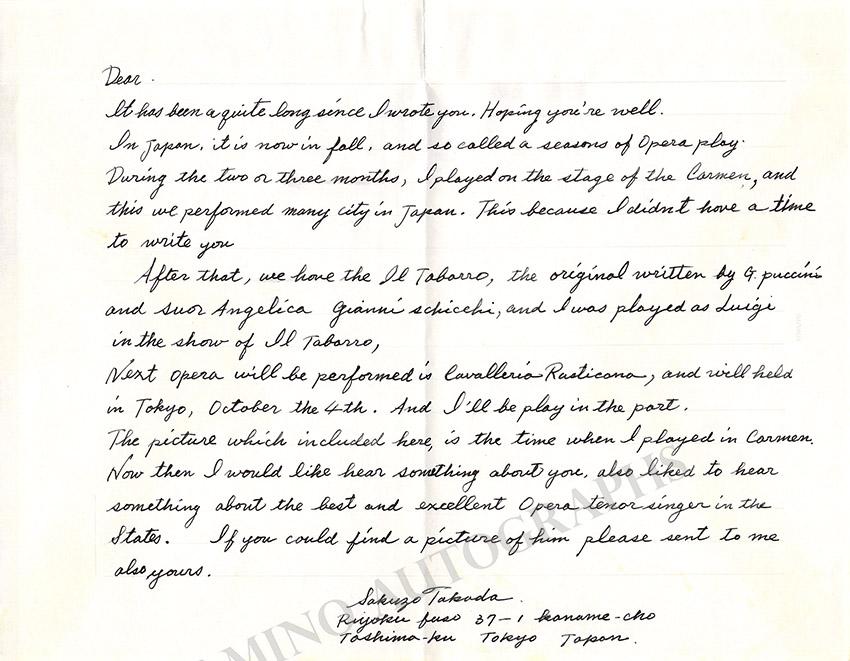 Dear.
It has been a quite long since I wrote you. Hoping you're well.
In Japan, it is now in fall, and so called a seasons of Opera play.
During the two or three months, I played on the stage of the Carmen, and
this we performed many city in Japan. This because I didn't have a time
to write you
After that, we have the Il Tabarro, the original written by G. puccini
and suor Angelica Gianni schicchi, and I was played as Luigi
in the show of Il Tabarro,
Next opera will be performed is Cavalleria Rusticana, and will held
in Tokyo, October the 4th. And I'll be play in the part.
The picture which included here, is the time when I played in Carmen.
Now then I would like hear something about you, also liked to hear
something about the best and excellent Opera tenor singer in the
States. If you could find a picture of him please sent to me
also yours.
Sakuzo Takada.
37-1 Kaname-cho
Toshima-ku Tokyo Japan.
AMINO AUTOGRAPHS